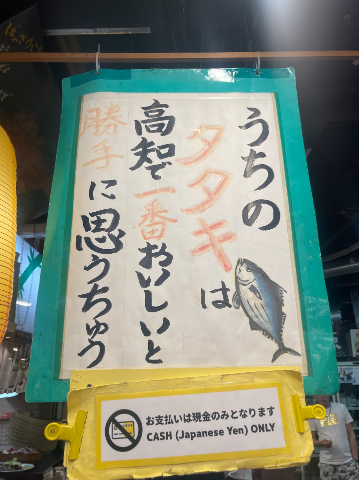 うちの
タタキは
高知で一番おいしいと
勝手に思うちゅう
お支払いは現金のみとなります
CASH (Japanese Yen) ONLY